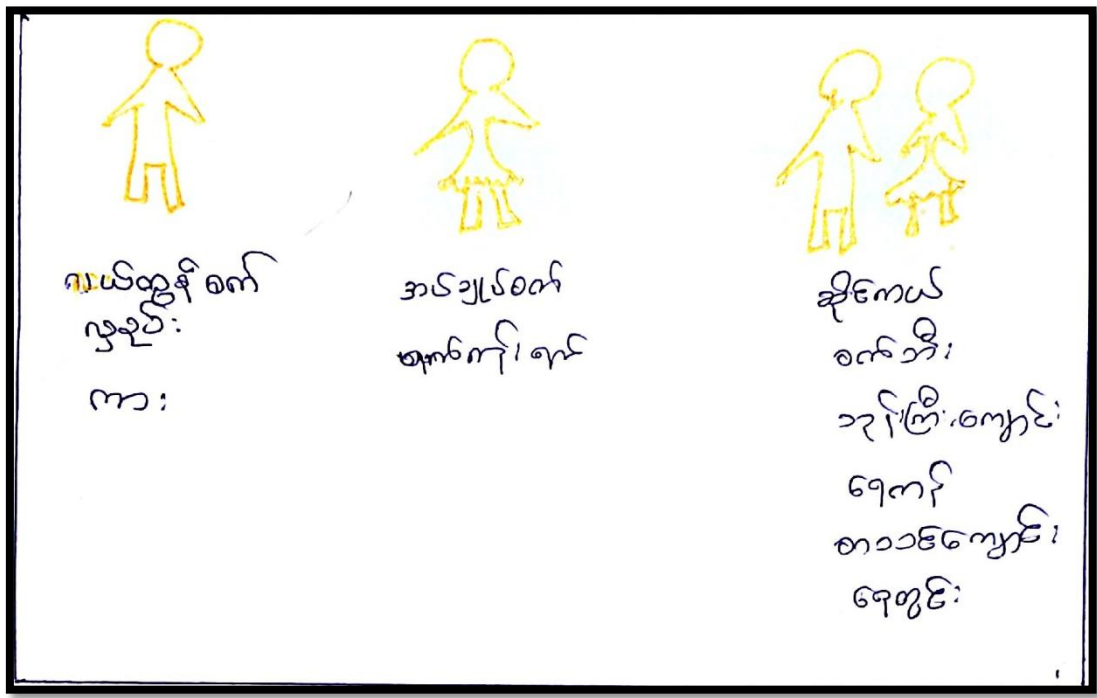 လယ်ထွန်စက်
လှေစပ်း
ကား
အပ်ချုပ်စက်
ရက်ကန်းရက်
ဆိုင်ကယ်
စက်ဘီး
ဘုန်းကြီးကျောင်း
ရေကန်
စာသင်ကျောင်း
ရေတွင်း